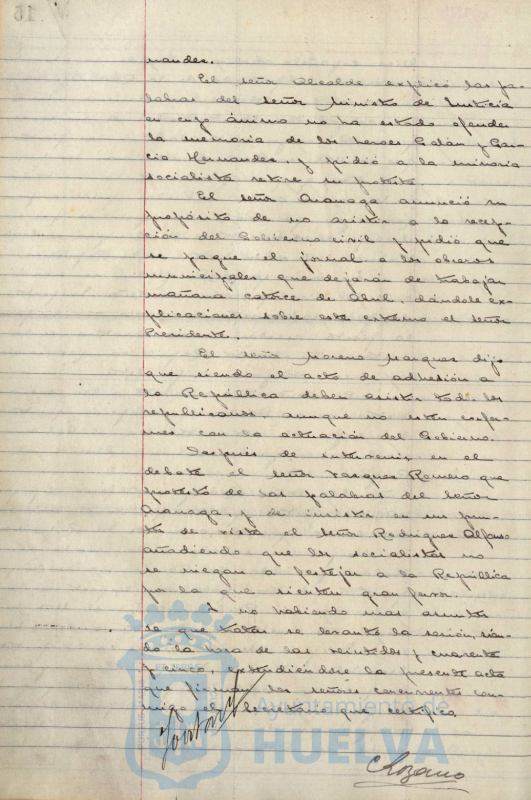 nandez.
El señor Alcalde explicó las pa-
labras del señor Ministro de Justicia
en cuyo ánimo no ha estado ofender
la memoria de los heroes Galan y Gar-
cia Hernandez, y pidió a la minoria
socialista retire su protesta.
El señor Aranaga anunció su
propósito de no asistir a la recep-
ción del Gobierno civil y pidió que
se pague el jornal a los obreros
municipales que dejarán de trabajar
mañana catorce de Abril, dándole ex-
plicaciones sobre este extremo el señor
Presidente.
El señor Moreno Marquez dijo
que siendo el acto de adhesión a
la República deben asistir todos los
republicanos, aunque no esten confor-
mes con la actuación del Gobierno.
Después de intervenir en el
debate el señor Vazquez Romero que
protestó de las palabras del señor
Aranaga, y de insistir en sus pun-
tos de vista el señor Rodriguez Alfonso
añadiendo que los socialistas no
se niegan a festejar a la República
por la que sienten gran fervor.
Y no habiendo mas asuntos
de que tratar se levantó la sesión, sien-
do la hora de las veintidos y cuarenta
y cinco, extendiéndose la presente acta
que firman los señores concurrentes con-
migo el Secretario que certifico.
Ayuntamiento de
HUELVA